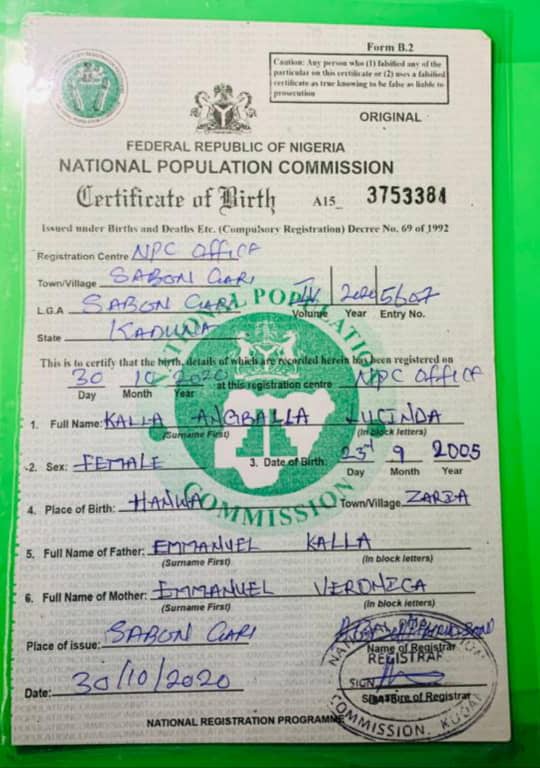 Form B.2
Caution: Any person who (1) falsified any of the
particular on this certificate or (2) uses a falsified
certificate as true knowing to be false as liable to
prosecution
ORIGINAL
FEDERAL REPUBLIC OF NIGERIA
NATIONAL POPULATION COMMISSION
Certificate of Birth A15_ 3753384
Issued under Births and Deaths Etc. (Compulsory Registration) Decree No. 69 of 1992
Registration Centre NPC OFFICE
Town/Village SABON GARI
L.G.A SABON GARI IV 2020 5607
Volume Year Entry No.
State KADUNA
NATIONAL POPULATION COMMISSION
This is to certify that the birth, details of which are recorded herein has been registered on
30 10 2020 at this registration centre NPC OFFICE
Day Month Year
1. Full Name: KALLA ANGBALLA LUCINDA
(Surname First) (In block letters)
2. Sex: FEMALE 3. Date of Birth: 23rd 9 2005
Day Month Year
4. Place of Birth: HANWA Town/Village ZARIA
5. Full Name of Father: EMMANUEL KALLA
(Surname First) (In block letters)
6. Full Name of Mother: EMMANUEL VERONICA
(Surname First) (In block letters)
Place of issue: SABON GARI
Name of Registrar
REGISTRAR
SIGN
Date: 30/10/2020 Signature of Registrar
COMMISSION,
NATIONAL REGISTRATION PROGRAMME